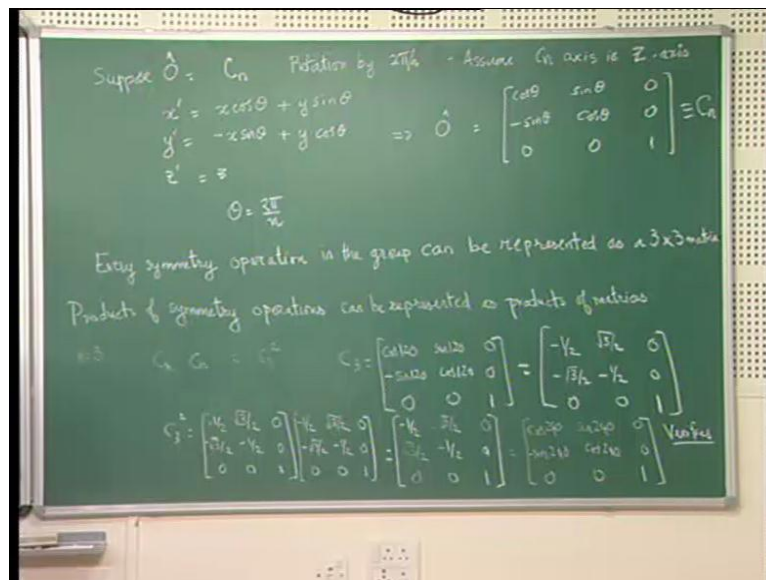 Suppose Ô = Cn Rotation by 2π/n - Assume Cn axis is Z-axis
x' = x cosθ + y sinθ
y' = -x sinθ + y cosθ => Ô = [cosθ sinθ 0; -sinθ cosθ 0; 0 0 1] ≡ Cn
z' = z
θ = 2π/n
Every symmetry operation in the group can be represented as a 3x3 matrix
Products of symmetry operations can be represented as products of matrices
Cn Cn = C C3 = [cos120 sin120 0; -sin120 cos120 0; 0 0 1] = [-1/2 √3/2 0; -√3/2 -1/2 0; 0 0 1]
C3² = [-1/2 √3/2 0; -√3/2 -1/2 0; 0 0 1] [-1/2 √3/2 0; -√3/2 -1/2 0; 0 0 1] = [-1/2 √3/2 0; √3/2 -1/2 0; 0 0 1] = [cos240 sin240 0; -sin240 cos240 0; 0 0 1] Verifies